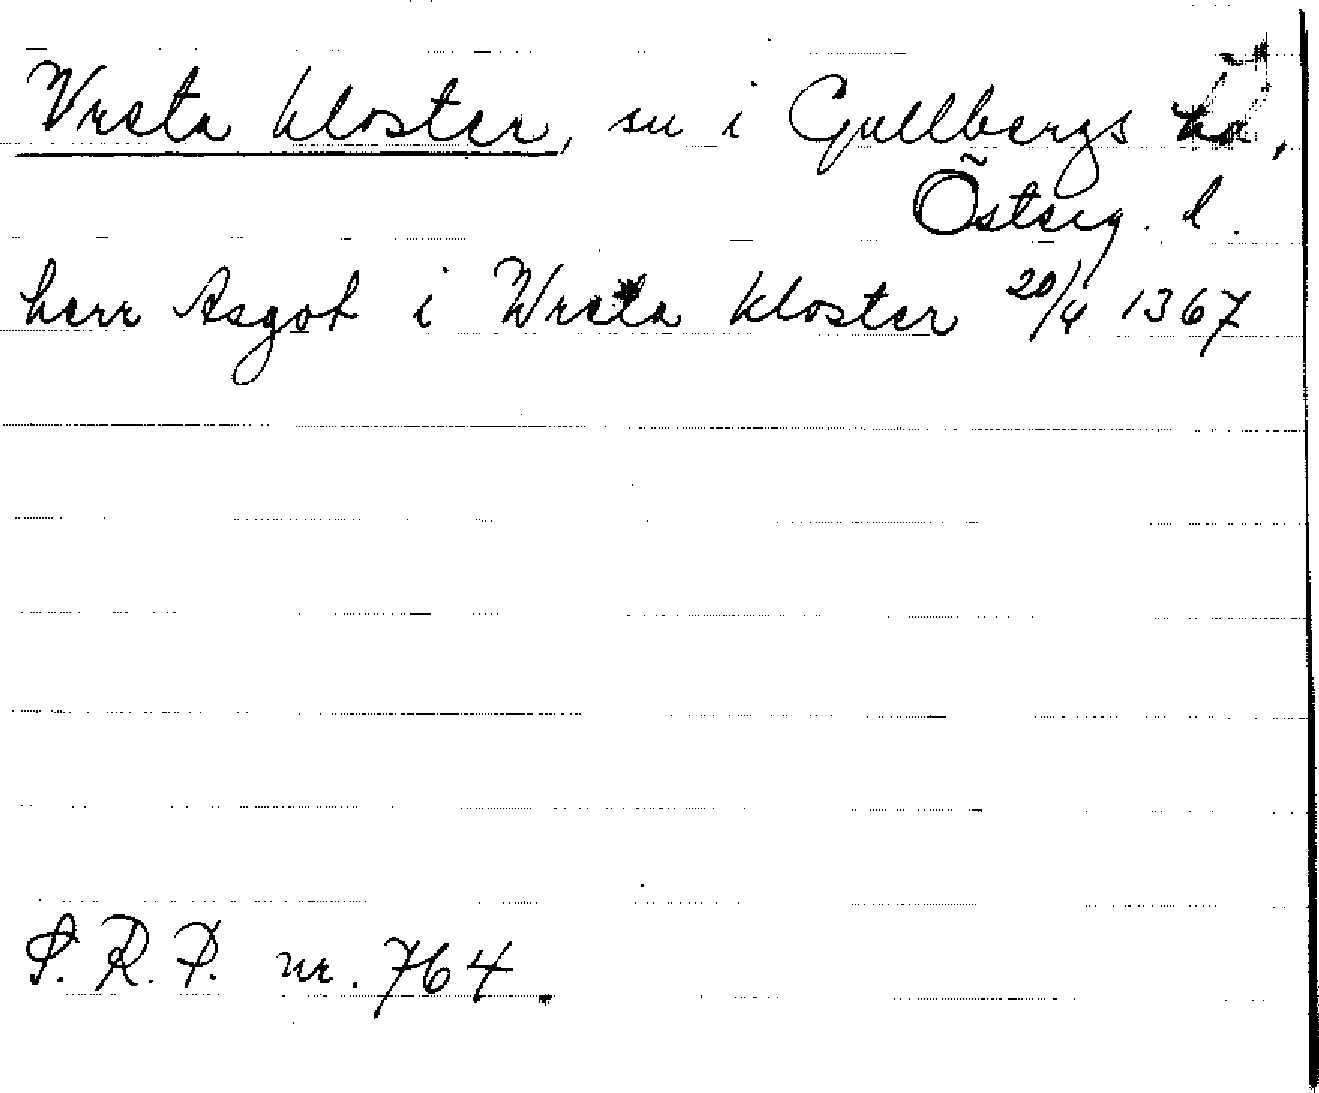 Vreta kloster, sn i Gullbergs hd,
Österg. l.
herr Asgot i Wreta kloster 20/4 1367
S. R. P. nr. 764.